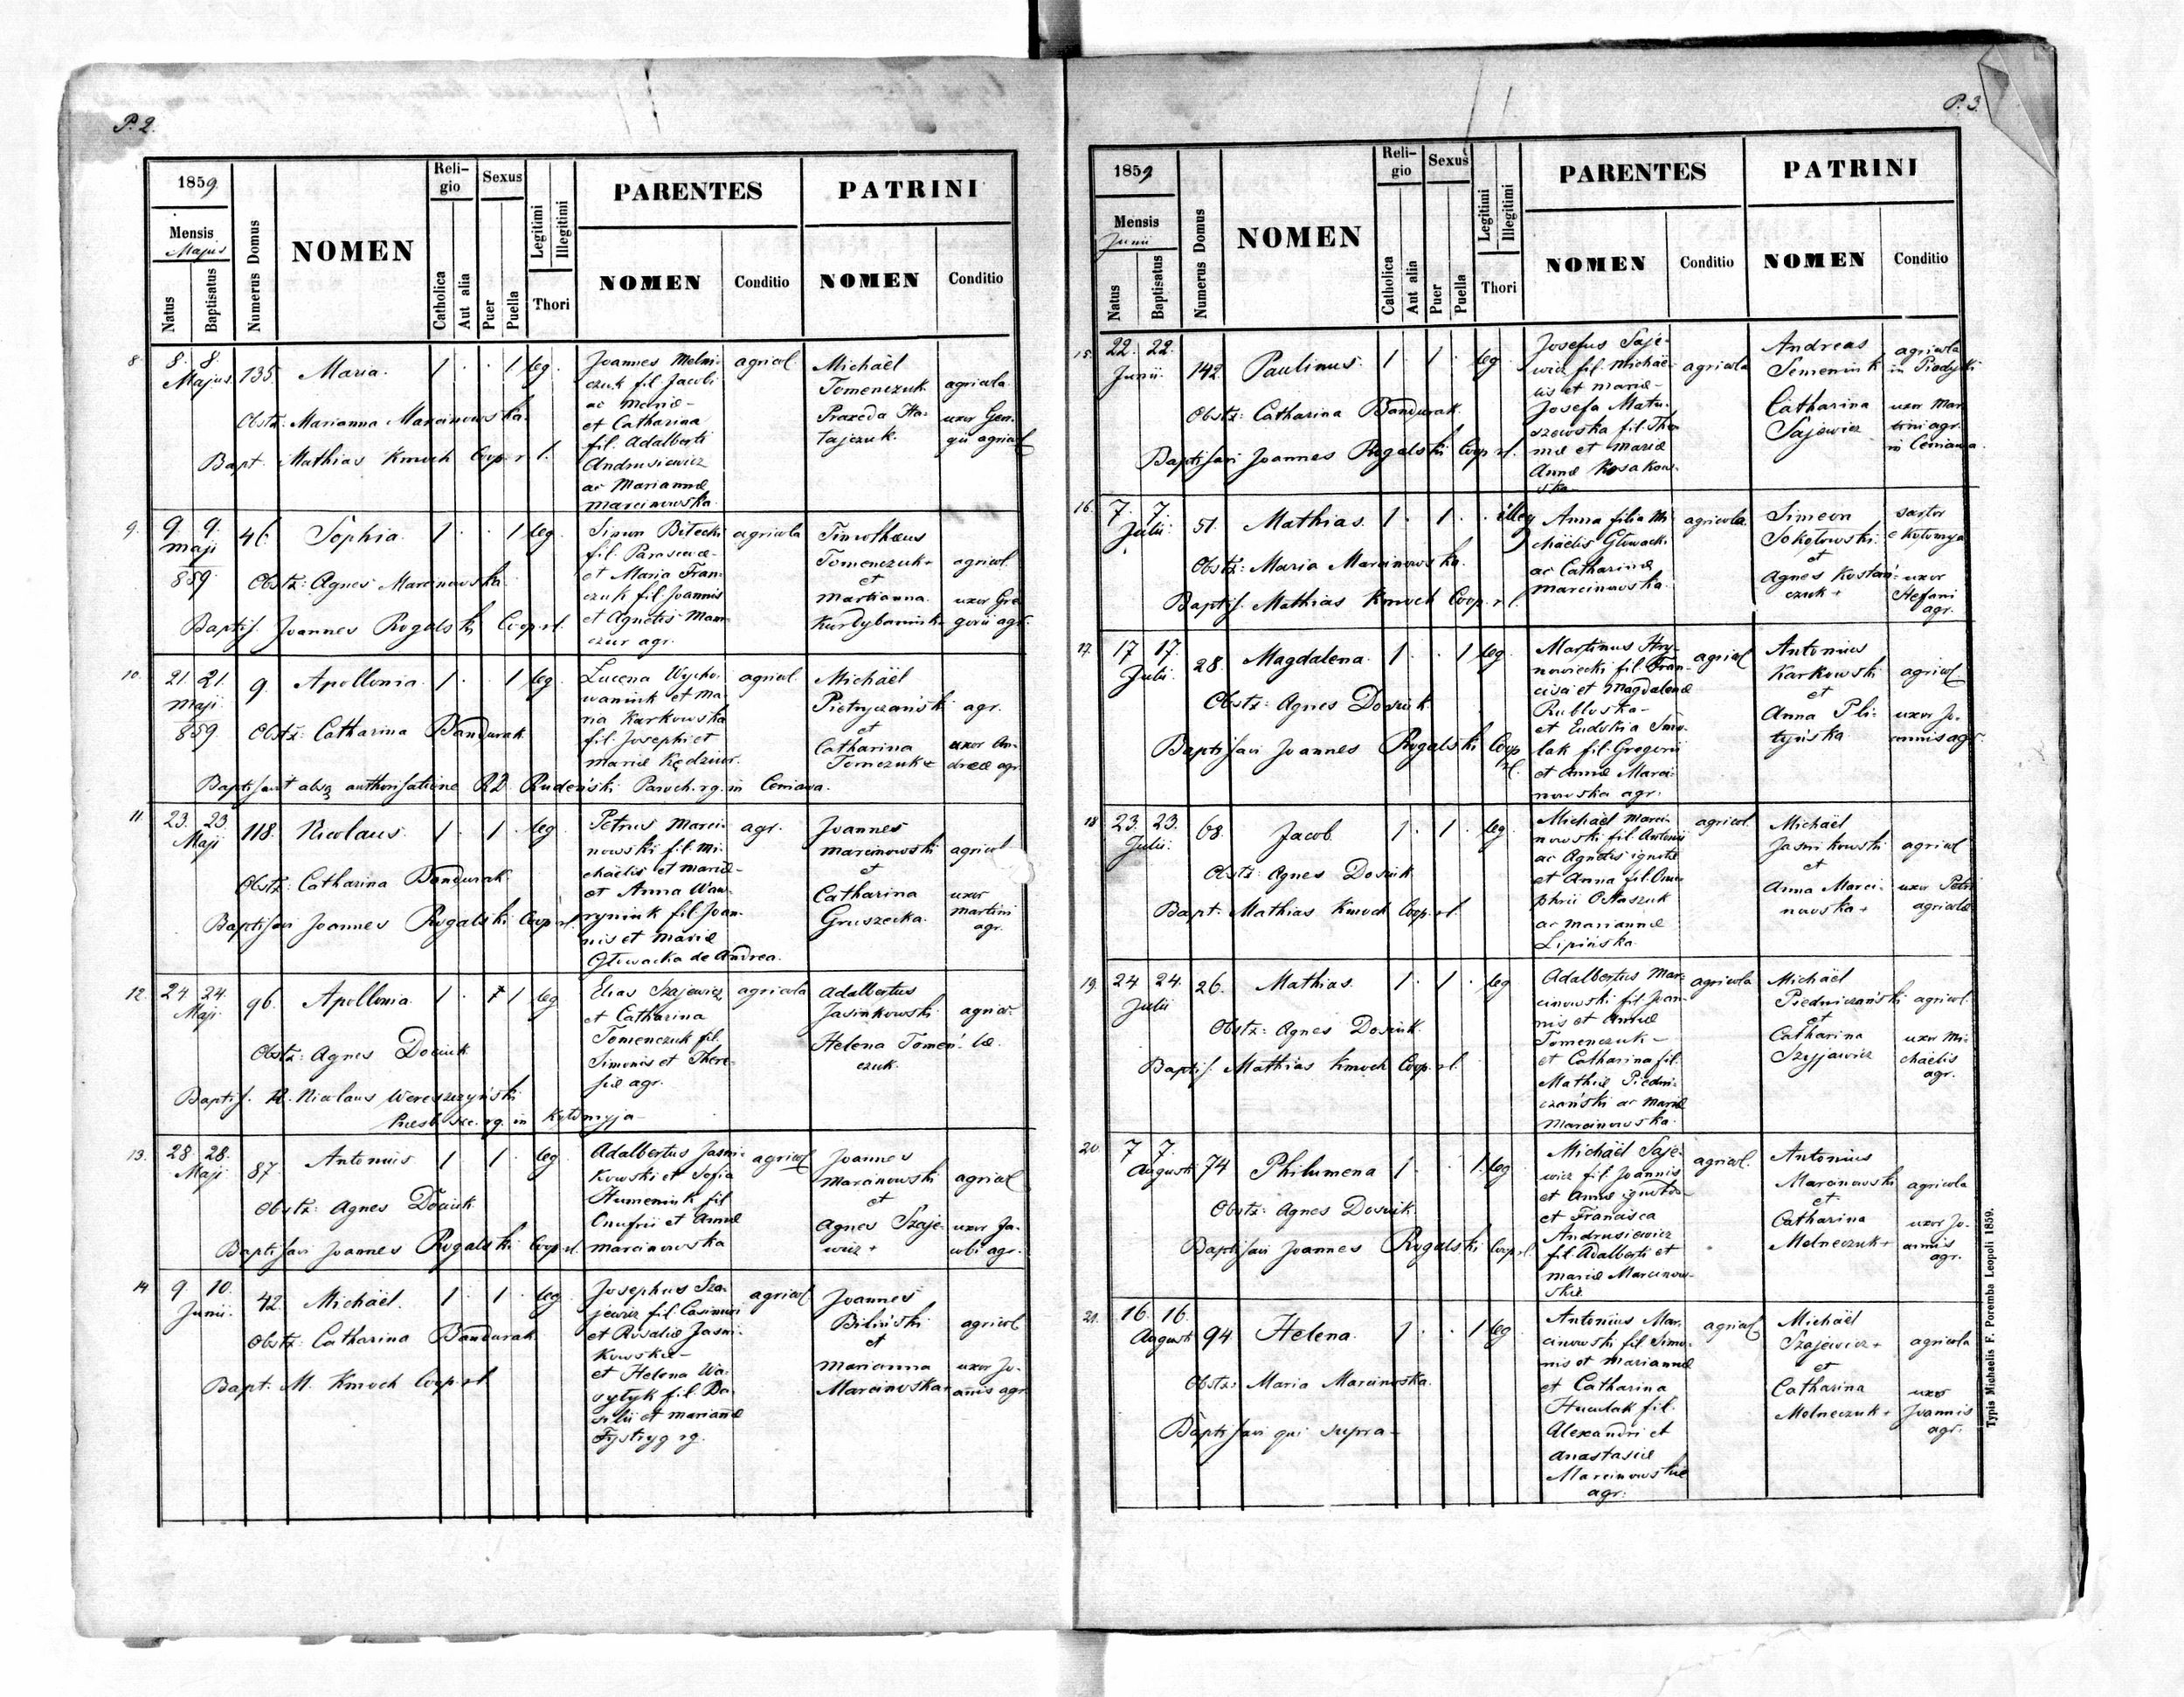 P. 2.
1859.
Mensis
Majus
Natus
Baptisatus
Numerus Domus
NOMEN
Reli-
gio
Catholica
Aut alia
Sexus
Puer
Puella
Legitimi
Illegitimi
Thori
PARENTES
NOMEN
Conditio
PATRINI
NOMEN
Conditio
8. 8. 8. 135. Maria. 1 . . 1 leg.
Majus
Obstz: Marianna Marcinowska.
Bapt. Mathias Kmoch Coop. r. l.
Joannes Melni-
czuk fil. Jacobi
ac Mariæ -
et Catharina
fil. Adalberti
Andrusiewicz
ac Mariannæ
Marcinowska.
agricol.
Michaël
Tomenczuk
Praxeda Ha-
tajczuk.
agricola.
uxor Geor-
gii agricol
9. 9. 9. 46. Sophia. 1 . . 1 leg.
Maji
859
Obstz: Agnes Marcinowska.
Baptis. Joannes Rogalski Coop. rl.
Simon Bitecki
fil. Parascevæ -
et Maria Fran-
czuk fil. Joannis
et Agnetis Mam-
czur agr.
agricola
Timotheus
Tomenczuk +
et
Martianna
agricol.
uxor Gre-
gorii agr.
10. 21. 21. 9. Apollonia. 1 . . 1 leg.
Maji
859
Obstz: Catharina Bandurak
Baptisavit absq authorisatione RD Rudeński Paroch. rg. in Ceniawa.
Lucena Wycho-
waniuk et Ma-
ria Karkowska
fil. Josephi et
Mariæ Kędzior.
agricol.
Michaël
Pietryczański
et
Catharina
Tomczuk +
agr.
uxor An-
dreæ agr.
11. 23. 23. 118. Nicolaus. 1 . 1 . leg.
Maji
Obstz: Catharina Bandurak.
Baptisavi Joannes Rogalski Coop. rl.
Petrus Marci-
nowski fil. Mi-
chaëlis et Mariæ -
et Anna Waw-
ryniuk fil. Joan-
nis et Mariæ
Głowacka de Andrea.
agr.
Joannes
Marcinowski
et
Catharina
Gruszecka.
agricol.
uxor
Martini
agr.
12. 24. 24. 96. Apollonia. 1 . 1 leg.
Maji.
Obstz: Agnes Dociuk
Baptis. R. Nicolaus Wereszczyński
Presb. sæc. rg. in Kołomyja -
Elias Szajewicz
et Catharina
Tomenczuk fil.
Simonis et There-
siæ agr.
agricola
Adalbertus
Jasinkowski
Helena Tomeń-
czuk.
agrico-
læ.
13. 28. 28. 87. Antonius. 1 . 1 . leg.
Maji
Obstz: Agnes Dociuk
Baptisavi Joannes Rogalski Coop. rl.
Adalbertus Jasni-
kowski et Sofia
Humeniuk fil.
Onufrii et Annæ
Marcinowska
agricol
Joannes
Marcinowski
et
Agnes Szaje-
wicz +
agricol
uxor Ja-
cobi agr.
14. 9. 10. 42. Michaël. 1 . 1 . leg.
Junii.
Obstz: Catharina Bandurak.
Bapt. M. Kmoch Coop. rl
Josephus Sza-
jewicz fil. Casimiri
et Rosaliæ Jasni-
kowskæ -
et Helena Wa-
sylyk fil. Ba-
silii et Mariannæ
Fystryg rg.
agricol
Joannes
Biliński
et
Marianna
Marcinowska +
agricol
uxor Jo-
annis agr.
P. 3.
1859
Mensis
Junii
Natus
Baptisatus
Numerus Domus
NOMEN
Reli-
gio
Catholica
Aut alia
Sexus
Puer
Puella
Legitimi
Illegitimi
Thori
PARENTES
NOMEN
Conditio
PATRINI
NOMEN
Conditio
15. 22. 22. 142. Paulinus. 1 . 1 . leg.
Junii.
Obstz: Catharina Bandurak.
Baptisavi Joannes Rogalski Coop. rl.
Josefus Saje-
wicz fil. Michaë-
lis et Mariæ -
Josefa Matu-
szewska fil. Tho-
mæ et Mariæ
Annæ Kosakow-
ska
agricola
Andreas
Semeniuk
Catharina
Sajewicz
agricola
uxor Mar-
tini agr.
in Ceniawa.
16. 7. 7. 51. Mathias. 1 . 1 . . illeg
Julii.
Obstz: Maria Marcinowska.
Baptis. Mathias Kmoch Coop. rl.
Anna filia Mi-
chaëlis Głowacki
ac Catharinæ
Marcinowska.
agricola.
Simeon
Sokołowski.
et
Agnes Kostań-
czuk +
sartor
e Kołomyja
uxor
Stefani
agr.
17. 17. 17. 28. Magdalena. 1 . . 1 leg.
Julii
Obstz: Agnes Dosiuk
Baptisavi Joannes Rogalski Coop
rl.
Martinus Hry-
nowiecki fil. Fran-
cisci et Magdalenæ
-
et Eudokia Smo-
lak fil. Gregorii
et Annæ Marci-
nowska agr.
agricol
Antonius
Karkowski
et
Anna Pli-
tyńska
agricol
uxor Jo-
annis agr.
18. 23. 23. 68. Jacob 1 . 1 . leg.
Julii.
Obstz: Agnes Dosiuk
Bapt. Mathias Kmoch Coop. rl.
Michaël Marci-
nowski fil. Antonii
ac Agnetis ignotæ
et Anna fil. Onu-
phrii Ostaszuk
ac Mariannæ
Lipińska.
agricol.
Michaël
Jasnikowski
et
Anna Marci-
nowska +
agricol
uxor Petri
agricolæ
19. 24. 24. 26. Mathias. 1 . 1 . leg
Julii
Obstz: Agnes Dosiuk.
Baptis. Mathias Kmoch Coop. rl.
Adalbertus Mar-
cinowski fil. Joan-
nis et Annæ
Tomenczuk -
et Catharina fil.
Mathiæ Piedni-
czański ac Mariæ
Marcinowska.
agricola
Michaël
Piedniczański
et
Catharina
Szyjawicz
agricol.
uxor Mi-
chaëlis
agr.
20. 7. 7. 74 Philumena 1 . . 1. leg
Augusti
Obstz: Agnes Dosiuk.
Baptisavi Joannes Rogalski Coop. rl.
Michaël Saje-
wicz fil. Joannis
et Annæ ignotæ -
et Francisca
Andrusiewicz
fil. Adalberti et
Mariæ Marcinow-
skiæ
agricol.
Antonius
Marcinowski
et
Catharina
Melneczuk +
agricola
uxor Jo-
annis
agr.
21. 16. 16. 94 Helena. 1 . . 1 leg
August.
Obstz: Maria Marcinowska.
Baptisavi qui supra -
Antonius Mar-
cinowski fil. Simo-
nis et Mariannæ
et Catharina
Huculak fil.
Alexandri et
Anastasiæ
Marcinowskiæ
agr.
agricol
Michaël
Szajewicz +
et
Catharina
Melneczuk +
agricola
uxor
Joannis
agr.
Typis Michaelis F. Poremba Leopoli 1859.